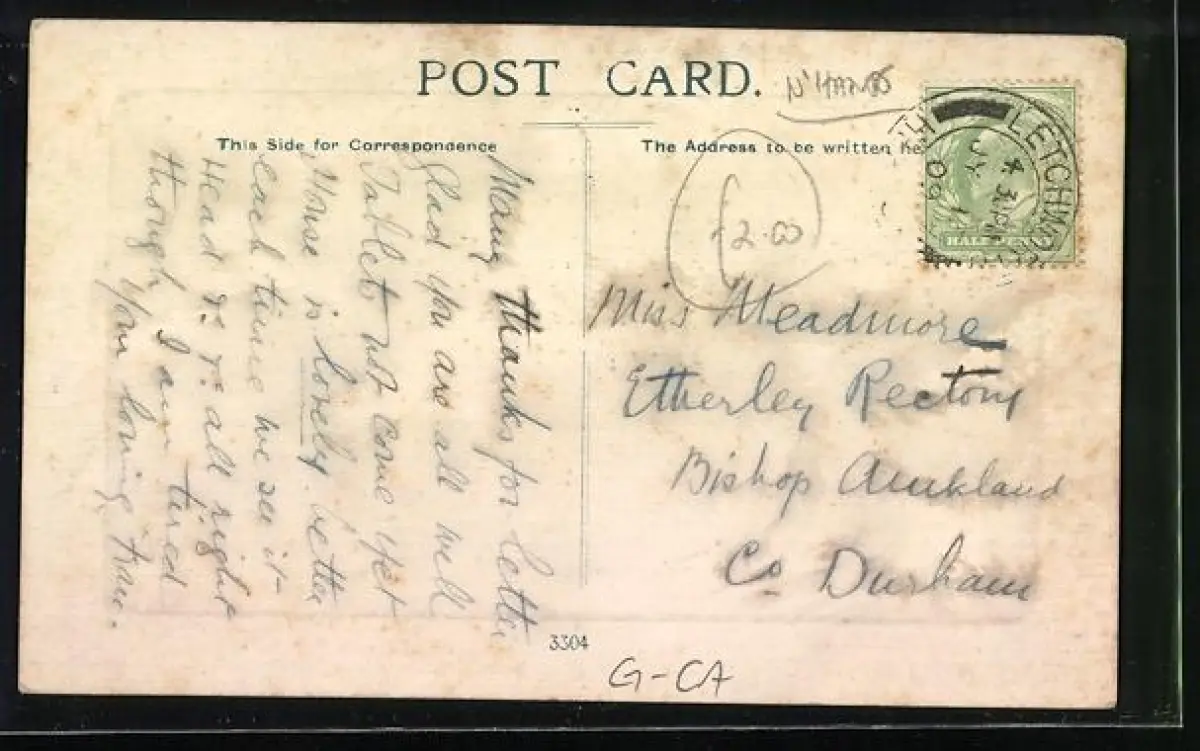 POST CARD.
N'HANTS
This Side for Correspondence
The Address to be written he
LETCHWORTH
3.PM
JY
09
HALF PENNY
2.00
Many thanks for letter
Glad you are all well
Tablet not come yet
House is lovely. better
each time we see it
Head all right
though I am tired
Your loving
Miss Meadmore
Etherley Rectory
Bishop Auckland
Co Durham
3304
G-CA